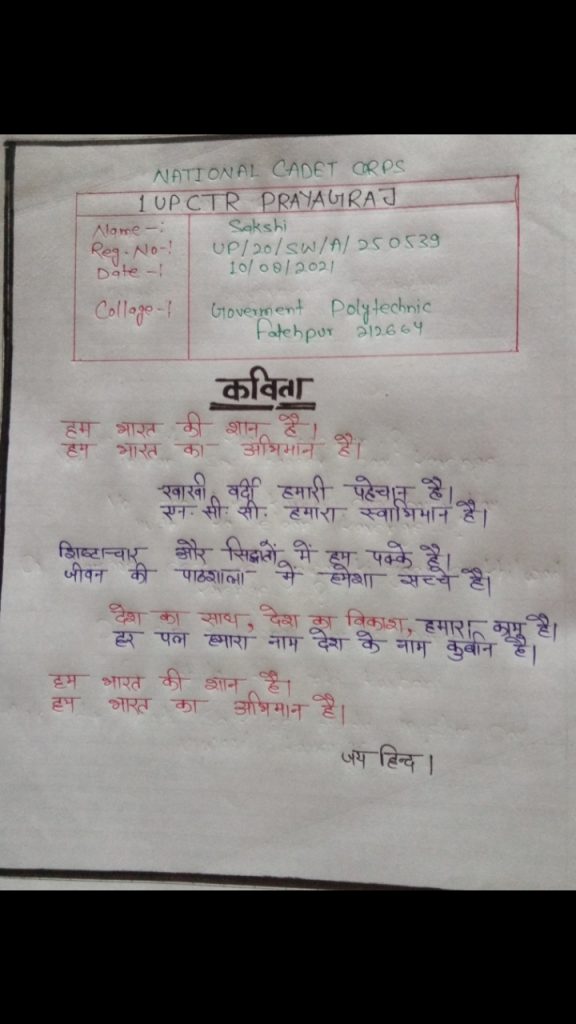 NATIONAL CADET CORPS
1 UP CTR PRAYAGRAJ
Name -: Sakshi
Reg. No -! UP/20/SW/A/250539
Date -! 10/08/2021
Collage -! Goverment Polytechnic
Fatehpur 212664
कविता
हम भारत की शान है।
हम भारत का अभिमान है।
खाखी वर्दी हमारी पहेचान है।
एन. सी. सी. हमारा स्वाभिमान है।
शिष्टाचार और सिद्धातों में हम पक्के है।
जीवन की पाठशाला में हमेशा सच्चे है।
देश का साथ, देश का विकाश, हमारा काम है।
हर पल हमारा नाम देश के नाम कुर्बान है।
हम भारत की शान है।
हम भारत का अभिमान है।
जय हिन्द।